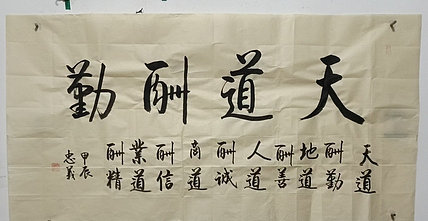 天道酬勤
天道
酬勤
地道
酬善
人道
酬诚
商道
酬信
業道
酬精
甲辰
忠義